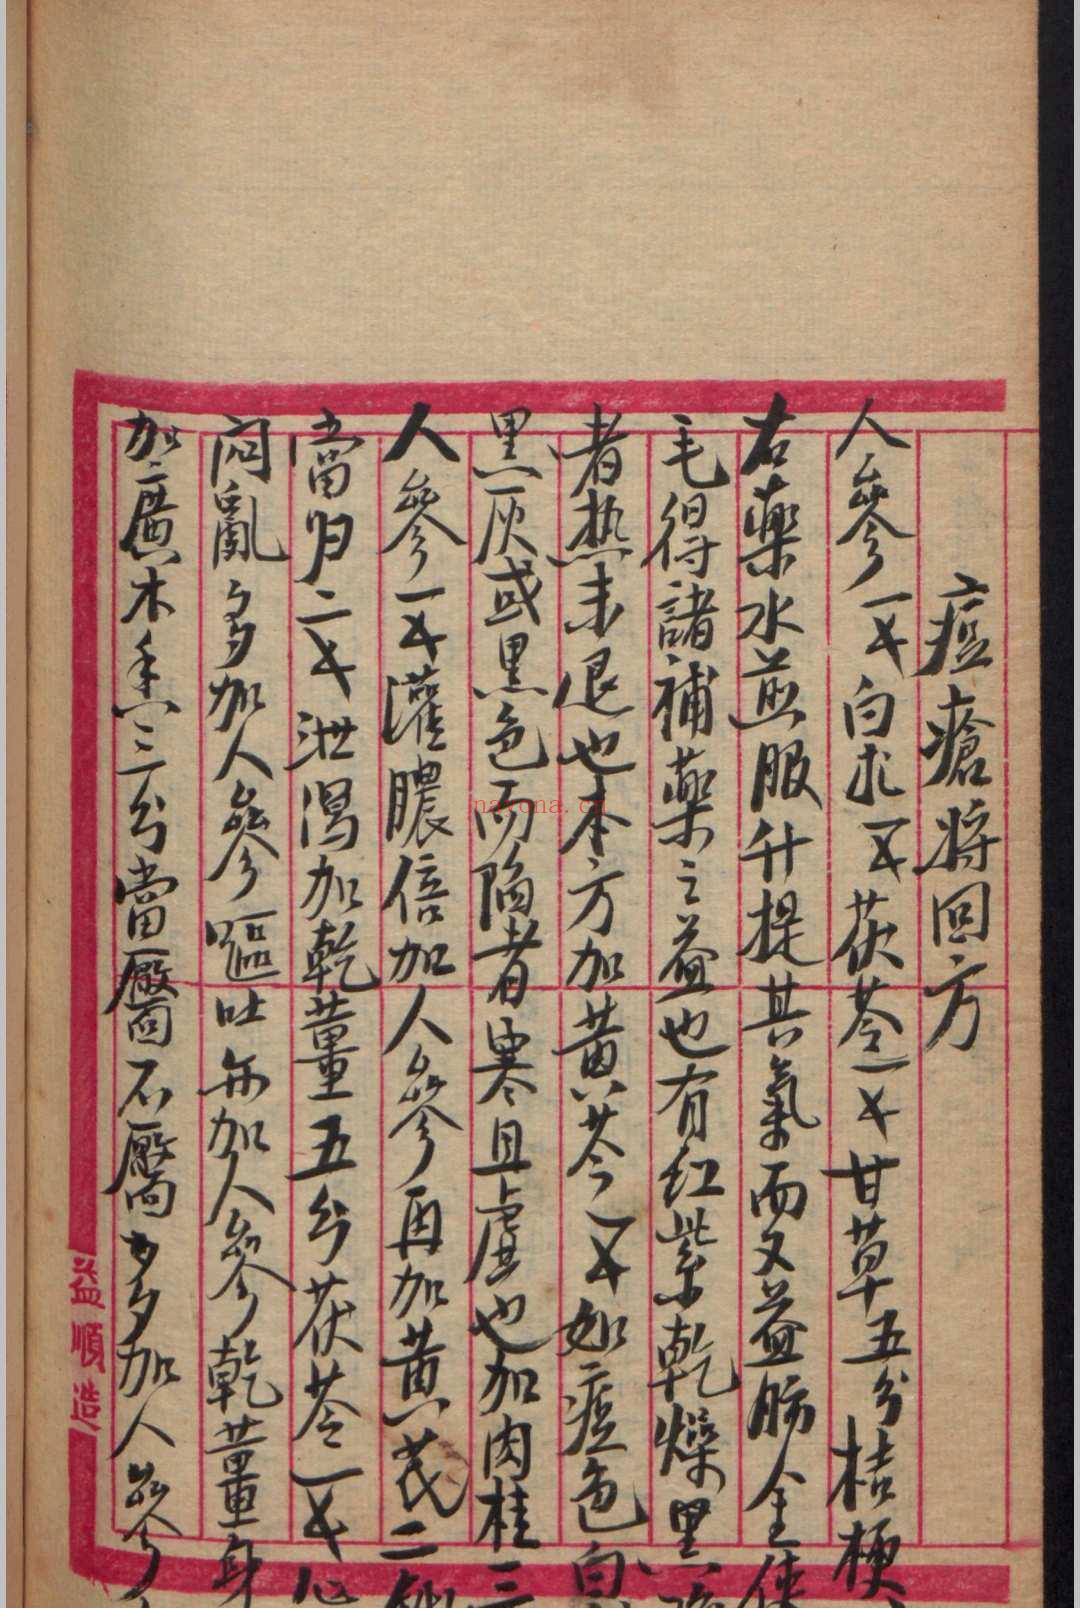 痘瘡將回方
人參一錢白朮一錢茯苓一錢甘草五分桔梗
右藥水煎服升提其氣而又益肺金使
毛得諸補藥之益也有紅紫乾燥黑陷
者热未退也本方加黄芩一錢如痘色白
黑灰或黑色而陷者寒且虛也加肉桂三
人參一錢灌膿倍加人參再加黄芪二錢
當归二錢泄瀉加乾薑五分茯苓一錢心
悶亂多加人參嘔吐亦加人參乾薑身
加廣木香三分當靨不靨多多加人參
益順造
nayona.cn